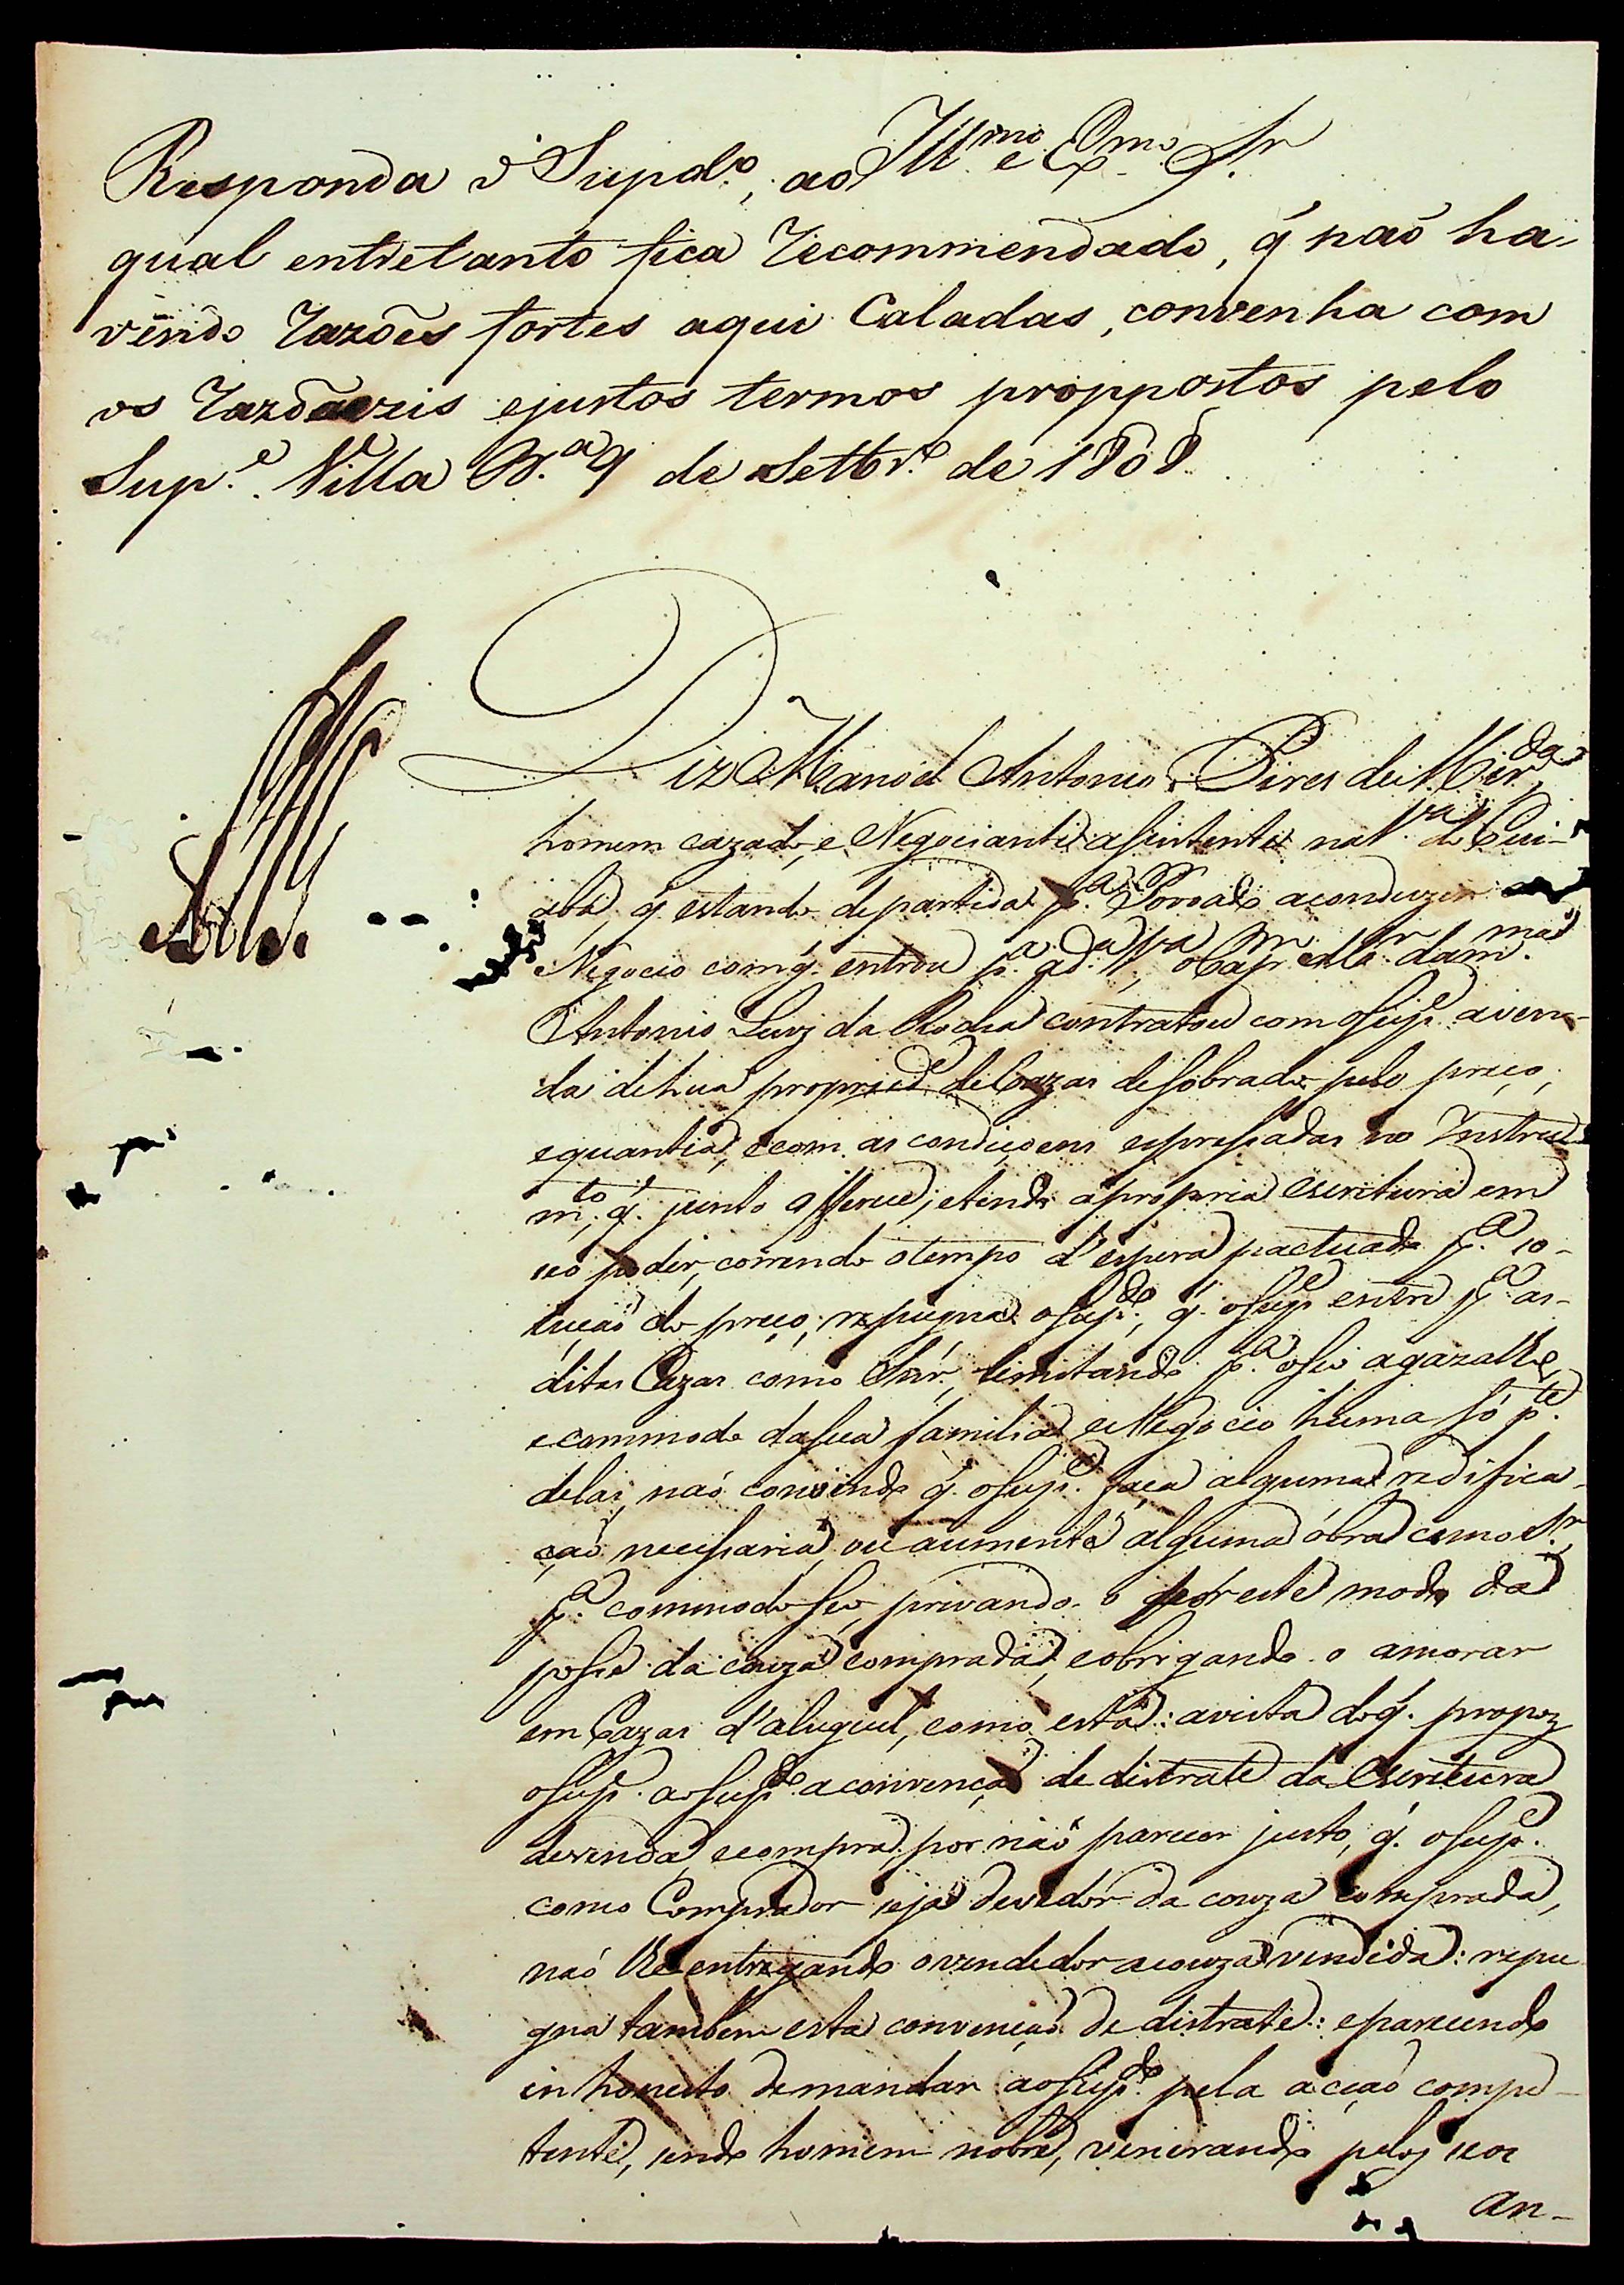 Ill.mo e Ex.mo Sr.
Responda o Supd.o, ao
qual entretanto fica recommendado, q' naõ ha-
vendo razões fortes aqui Caladas, convenha com
os razoaveis e justos termos proppostos pelo
Sup.e Villa B.a 9 de Settbr.o de 1808
Diz Manoel Antonio Pires de Mir.da,
homem cazado, e Negociante asistente na V.a do Cui-
abá, q. estando de partida p.a Povoado aconduzir
Negocio com q. entrou p.a a d.a V.a, o Cap.m M.r da m.ma
Antonio Luiz da Rocha contratou com o Sup.e a ven-
da de hua propried.e de Cazas de sobrado pelo preço,
e quantia, e com as condiçoens espressadas no Instru-
m.to q. junto offerece; e tendo a propria escritura em
seo poder, correndo o tempo d'espera pactuado p.a so-
luçaõ do preço, repugna o Sup.do, q. o Sup.e entre p.a as
ditas Cazas como Snr., limitando p.a o seo agazalho,
e commodo da sua familia, e Negocio huma só p.te
delas, naõ convindo q. o Sup.e faça alguma redifica-
çaõ necessaria, ou aumente alguma óbra como S.r,
p.a commodo seo, privando-o por este modo da
posse da couza comprada, e obrigando-o a morar
em Cazas d'aluguel, como está: a vista do q. propoz
o Sup.e ao Sup.do a convençaõ de distrate da Escritura
de venda, e compra, por naõ parecer justo, q. o Sup.e
como Comprador seja devedor da couza comprada,
naõ lhe entregando o vendedor a couza vendida: repu
gna tambem esta convençaõ de distrate: e parecendo
inhonesto demandar ao Sup.do pela acçaõ compe-
tente, sendo homem nobre, venerando pelos seos
an-